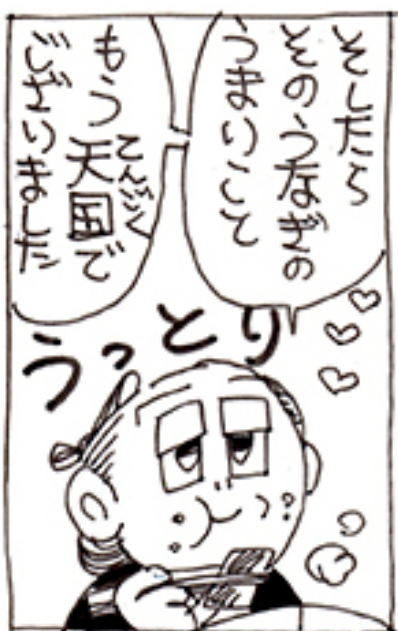 そしたら
そのうなぎの
うまいこと
もう天国で
てんごく
ございました
うっとり